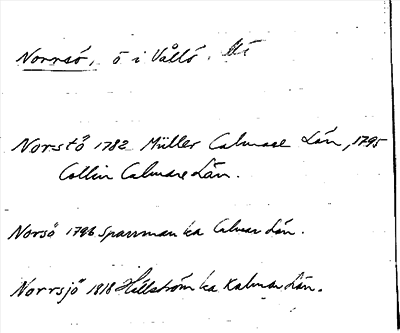 Norrsö, ö i Vållö.
Norstö 1782 Müller Calmare Län, 1795
Collin Calmare Län.
Norsö 1796 Sparrman ka Calmar Län.
Norrsjö 1818 Hällström ka Kalmar Län.